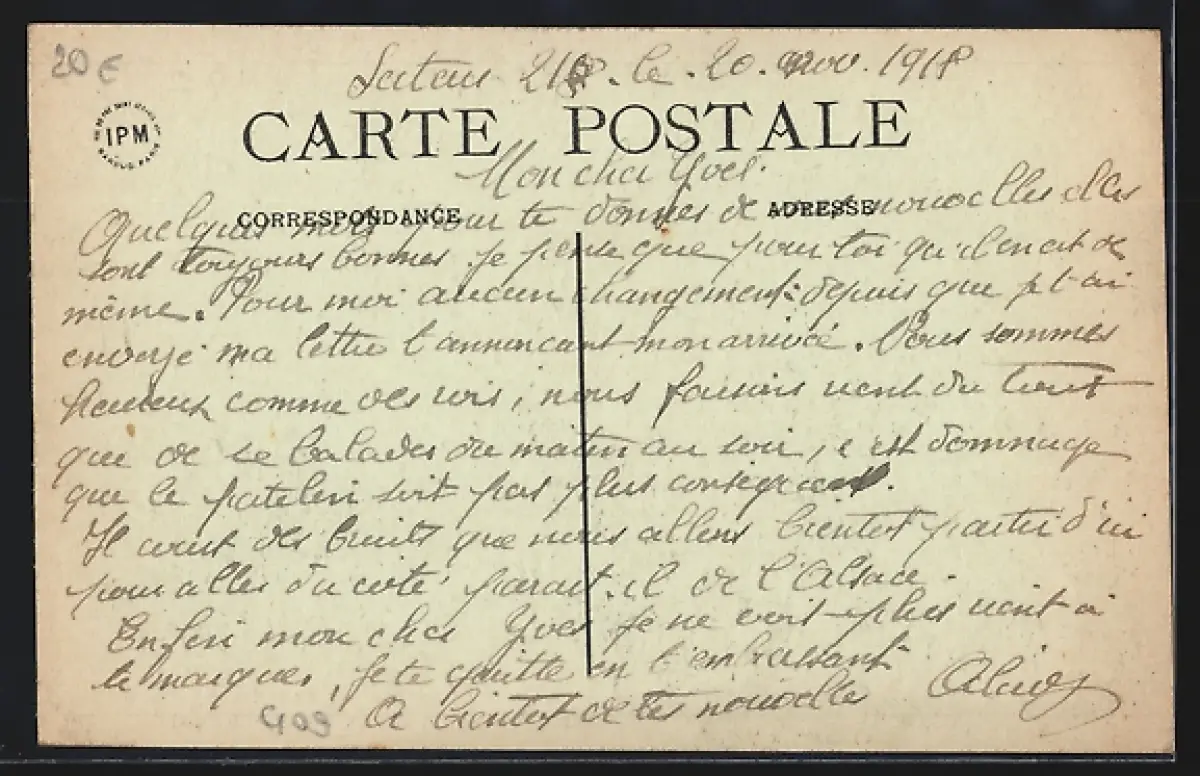 20 €
le 20 nov. 1918
IPM
CARTE POSTALE
Mon cher Yves.
CORRESPONDANCE
ADRESSE
Quelques mots pour te donner de mes nouvelles elles
sont toujours bonnes je pense que pour toi qu'il en est de
même. Pour moi aucun changement depuis que je t'ai
envoyé ma lettre t'annoncant mon arrivée. Nous sommes
heureux comme des rois, nous faisons rient du tout
que de se balader du matin au soir, c'est dommage
que le patelin soit pas plus conséquent.
Il court des bruits que nous allons bientot partir d'ici
pour aller du coté parait-il de l'Alsace.
Enfin mon cher Yves je ne voit plus rient a
te marquer, je te quitte en t'embrassant
A bientot de tes nouvelles